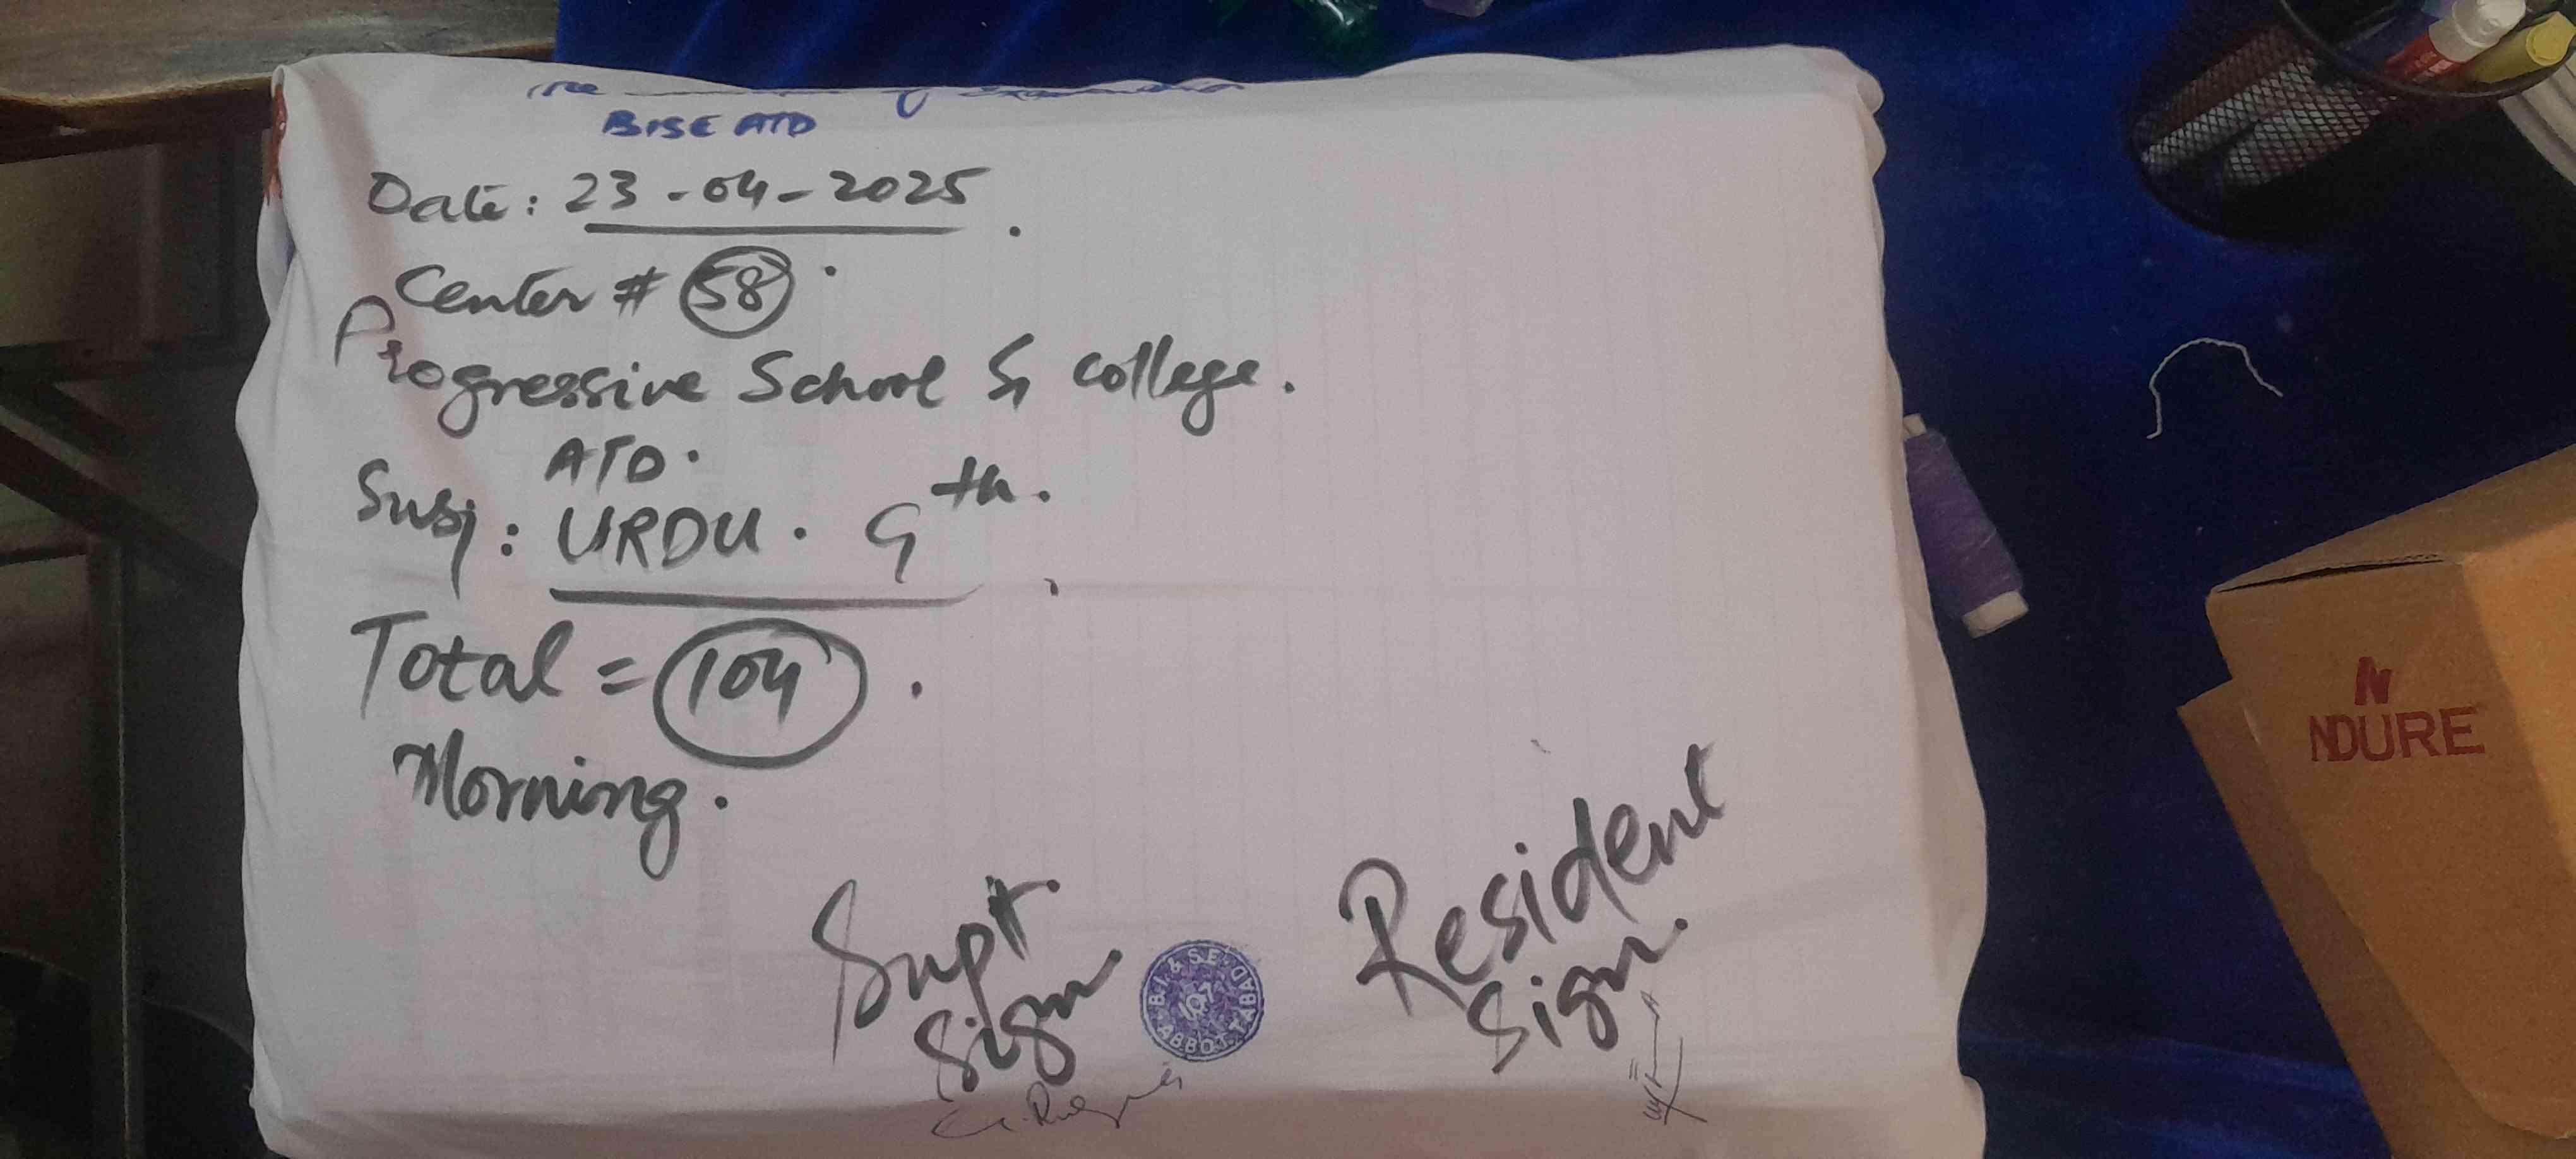 BISE ATD
Date: 23-04-2025.
Center # 58.
Progressive School & college.
ATD.
Subj: URDU. 9th.
Total = 104.
Morning.
Supt Sign
Resident Sign.
B.I. & S.E. ABBOTTABAD
107
N
NDURE